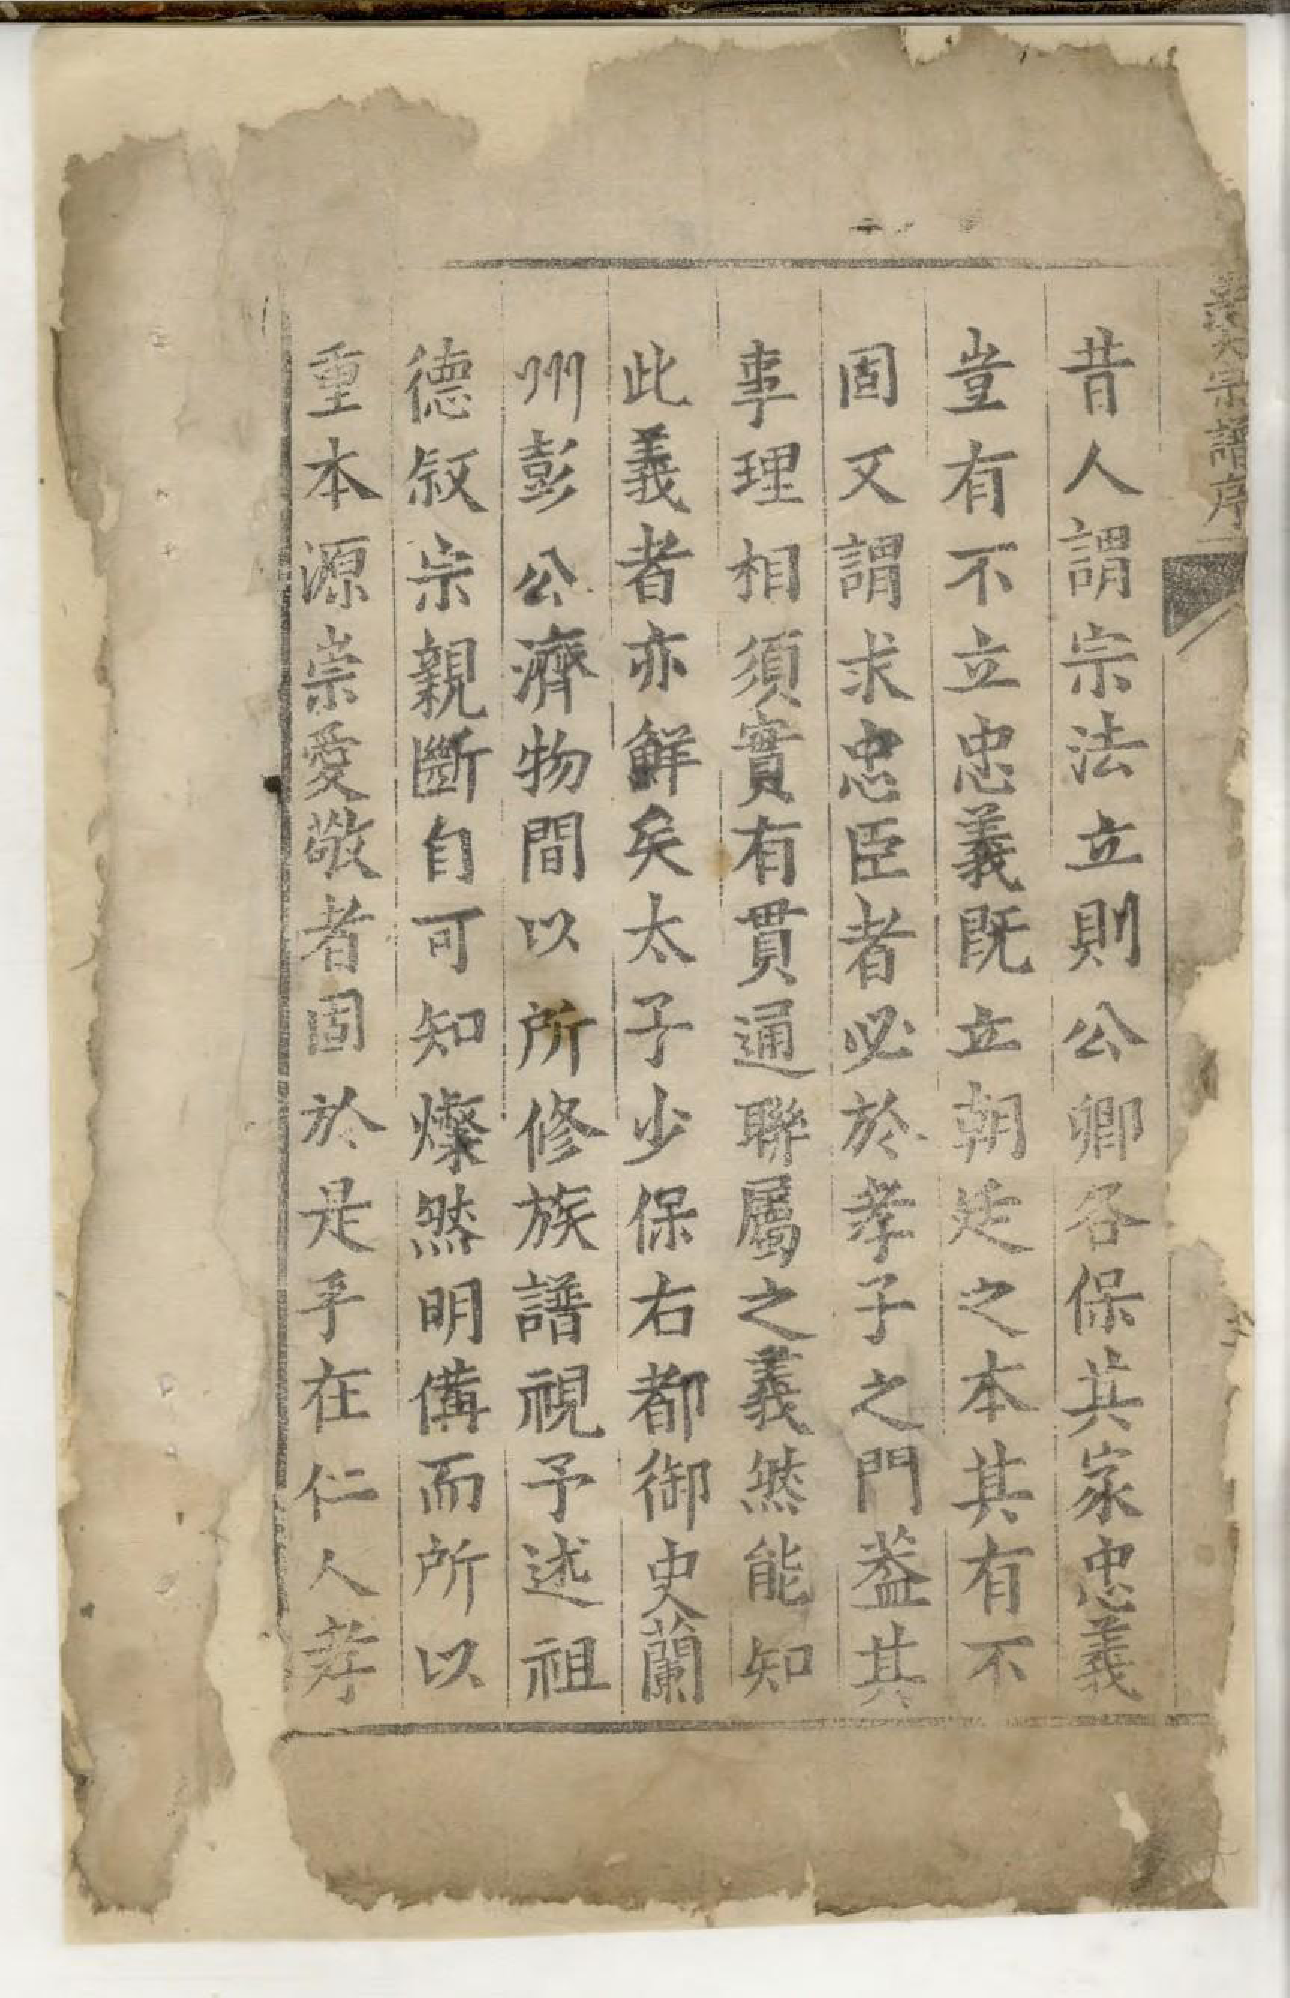 宗譜序
昔人謂宗法立則公卿各保其家忠義
豈有不立忠義既立朝廷之本其有不
固又謂求忠臣者必於孝子之門葢其
事理相須實有貫通聯屬之義然能知
此義者亦鮮矣太子少保右都御史蘭
州彭公濟物間以所修族譜視予述祖
德叙宗親斷自可知燦然明僃而所以
重本源崇愛敬者固於是乎在仁人孝